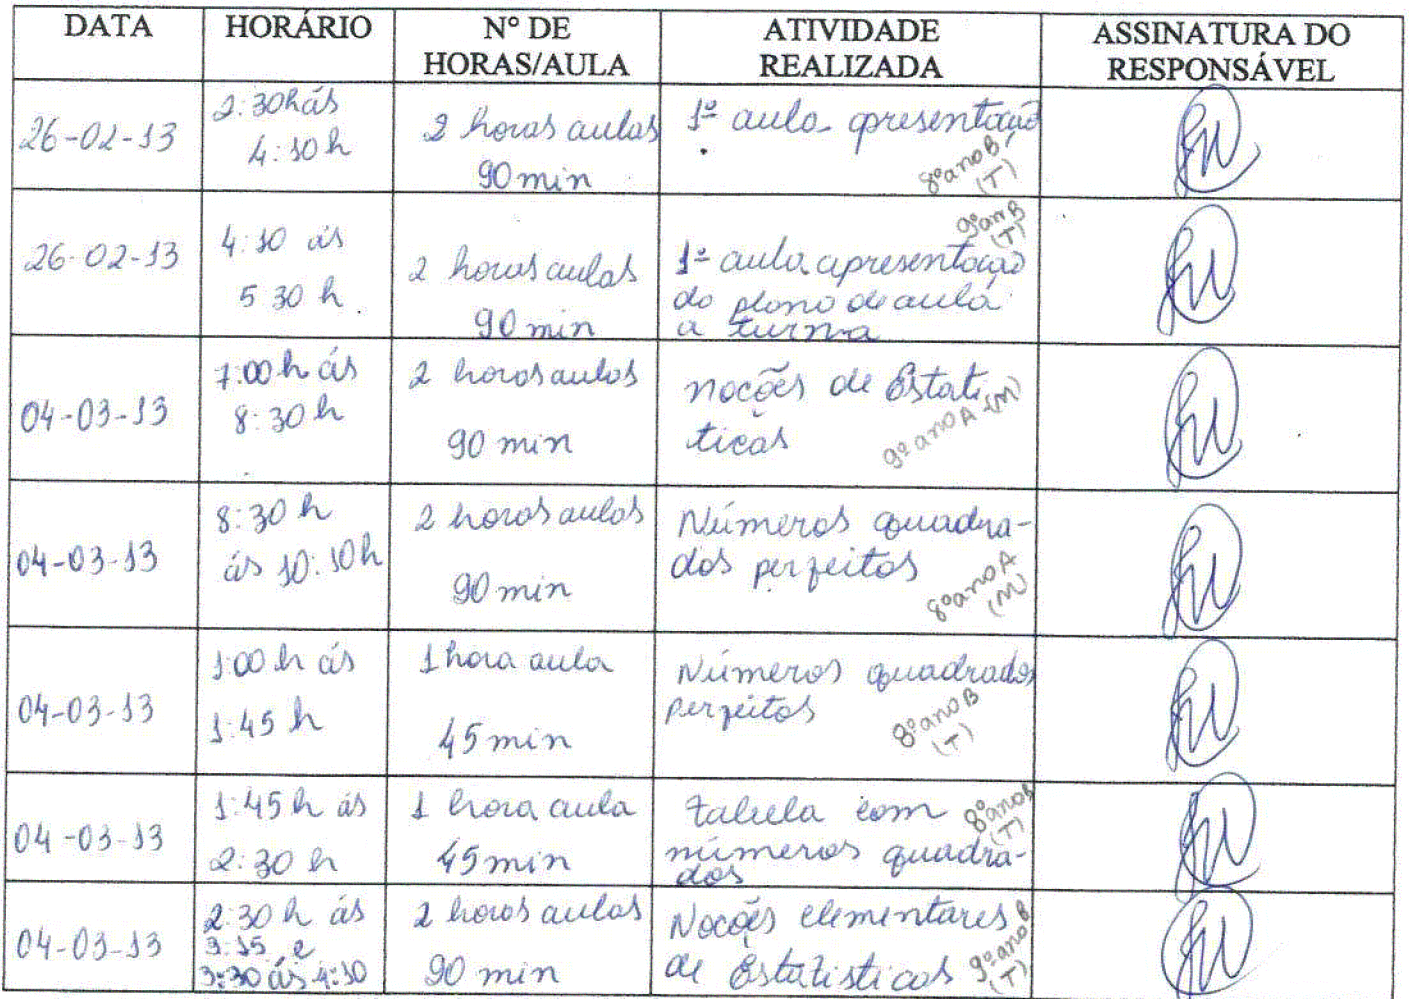 DATA
HORÁRIO
Nº DE
HORAS/AULA
ATIVIDADE
REALIZADA
ASSINATURA DO
RESPONSÁVEL
26-02-13
2:30h ás
4:10 h
2 horas aulas
90 min
1ª aula apresentação
8º ano B
(T)
26-02-13
4:10 ás
5 30 h
2 horas aulas
90 min
9º an B
(T)
1ª aula apresentação
do plano de aula
a turma
04-03-13
7:00 h ás
8:30 h
2 horas aulas
90 min
noções de Estati
ticas
9º ano A (M)
04-03-13
8:30 h
ás 10:10h
2 horas aulas
90 min
Números quadra-
dos perfeitos
8º ano A
(M)
04-03-13
1:00 h ás
1:45 h
1 hora aula
45 min
Números quadrados
perfeitos
8º ano B
(T)
04-03-13
1:45 h ás
2:30 h
1 hora aula
45 min
tabela com
números quadra-
dos
8º ano B
(T)
04-03-13
2:30 h ás
3:15 e
3:30 ás 4:10
2 horas aulas
90 min
Noções elementares
de Estatisticas
9º ano B
(T)